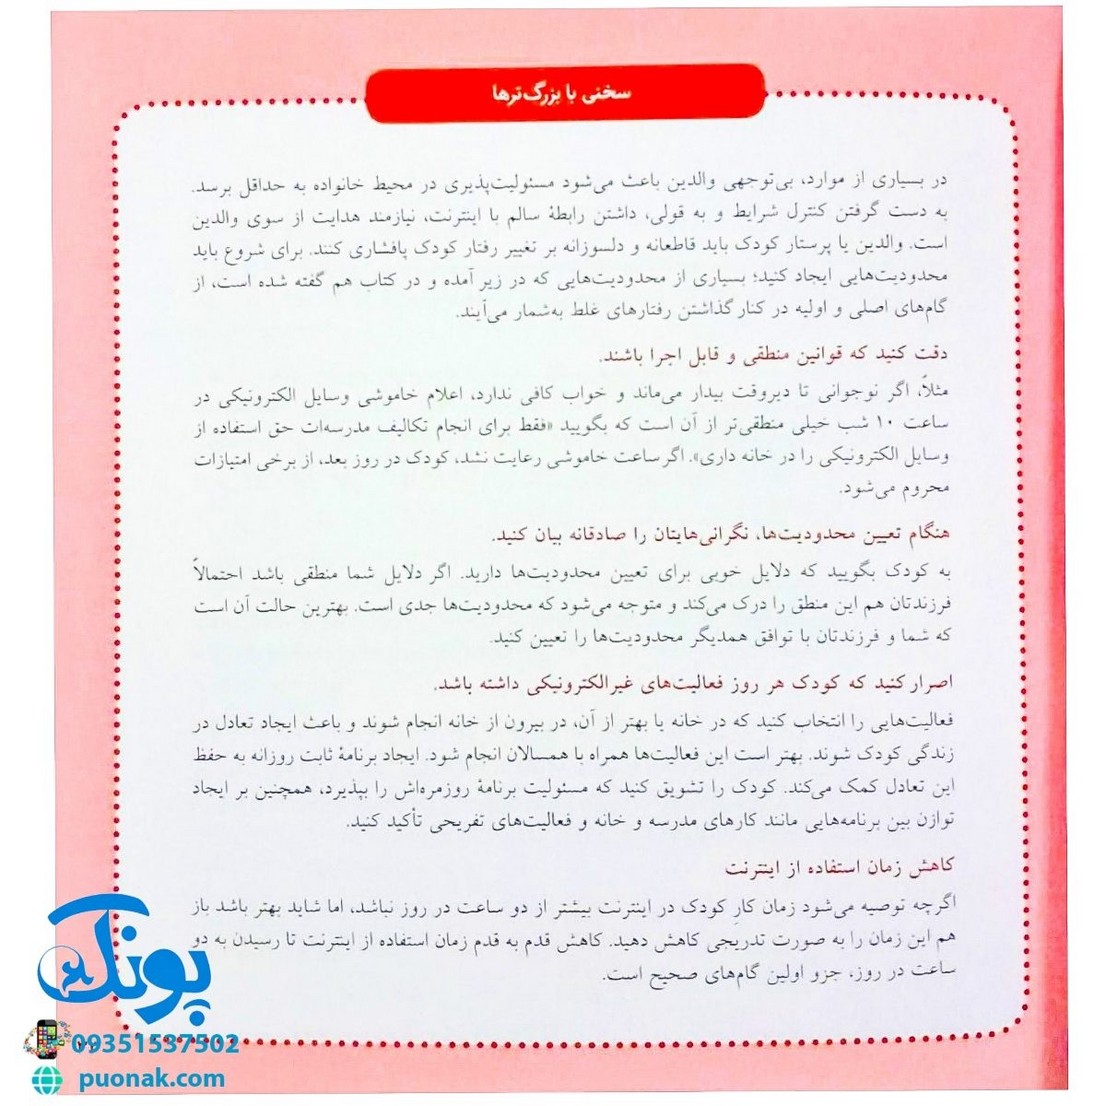 سخنی با بزرگ‌ترها
در بسیاری از موارد، بی‌توجهی والدین باعث می‌شود مسئولیت‌پذیری در محیط خانواده به حداقل برسد.
به دست گرفتن کنترل شرایط و به قولی، داشتن رابطهٔ سالم با اینترنت، نیازمند هدایت از سوی والدین
است. والدین یا پرستار کودک باید قاطعانه و دلسوزانه بر تغییر رفتار کودک پافشاری کنند. برای شروع باید
محدودیت‌هایی ایجاد کنید؛ بسیاری از محدودیت‌هایی که در زیر آمده و در کتاب هم گفته شده است، از
گام‌های اصلی و اولیه در کنار گذاشتن رفتارهای غلط به‌شمار می‌آیند.
دقت کنید که قوانین منطقی و قابل اجرا باشند.
مثلاً، اگر نوجوانی تا دیروقت بیدار می‌ماند و خواب کافی ندارد، اعلام خاموشی وسایل الکترونیکی در
ساعت ۱۰ شب خیلی منطقی‌تر از آن است که بگویید «فقط برای انجام تکالیف مدرسه‌ات حق استفاده از
وسایل الکترونیکی را در خانه داری». اگر ساعت خاموشی رعایت نشد، کودک در روز بعد، از برخی امتیازات
محروم می‌شود.
هنگام تعیین محدودیت‌ها، نگرانی‌هایتان را صادقانه بیان کنید.
به کودک بگویید که دلایل خوبی برای تعیین محدودیت‌ها دارید. اگر دلایل شما منطقی باشد احتمالاً
فرزندتان هم این منطق را درک می‌کند و متوجه می‌شود که محدودیت‌ها جدی است. بهترین حالت آن است
که شما و فرزندتان با توافق همدیگر محدودیت‌ها را تعیین کنید.
اصرار کنید که کودک هر روز فعالیت‌های غیرالکترونیکی داشته باشد.
فعالیت‌هایی را انتخاب کنید که در خانه یا بهتر از آن، در بیرون از خانه انجام شوند و باعث ایجاد تعادل در
زندگی کودک شوند. بهتر است این فعالیت‌ها همراه با همسالان انجام شود. ایجاد برنامهٔ ثابت روزانه به حفظ
این تعادل کمک می‌کند. کودک را تشویق کنید که مسئولیت برنامهٔ روزمره‌اش را بپذیرد، همچنین بر ایجاد
توازن بین برنامه‌هایی مانند کارهای مدرسه و خانه و فعالیت‌های تفریحی تأکید کنید.
کاهش زمان استفاده از اینترنت
اگرچه توصیه می‌شود زمان کارِ کودک در اینترنت بیشتر از دو ساعت در روز نباشد، اما شاید بهتر باشد باز
هم این زمان را به صورت تدریجی کاهش دهید. کاهش قدم به قدم زمان استفاده از اینترنت تا رسیدن به دو
ساعت در روز، جزو اولین گام‌های صحیح است.
پونک
09351537502
puonak.com